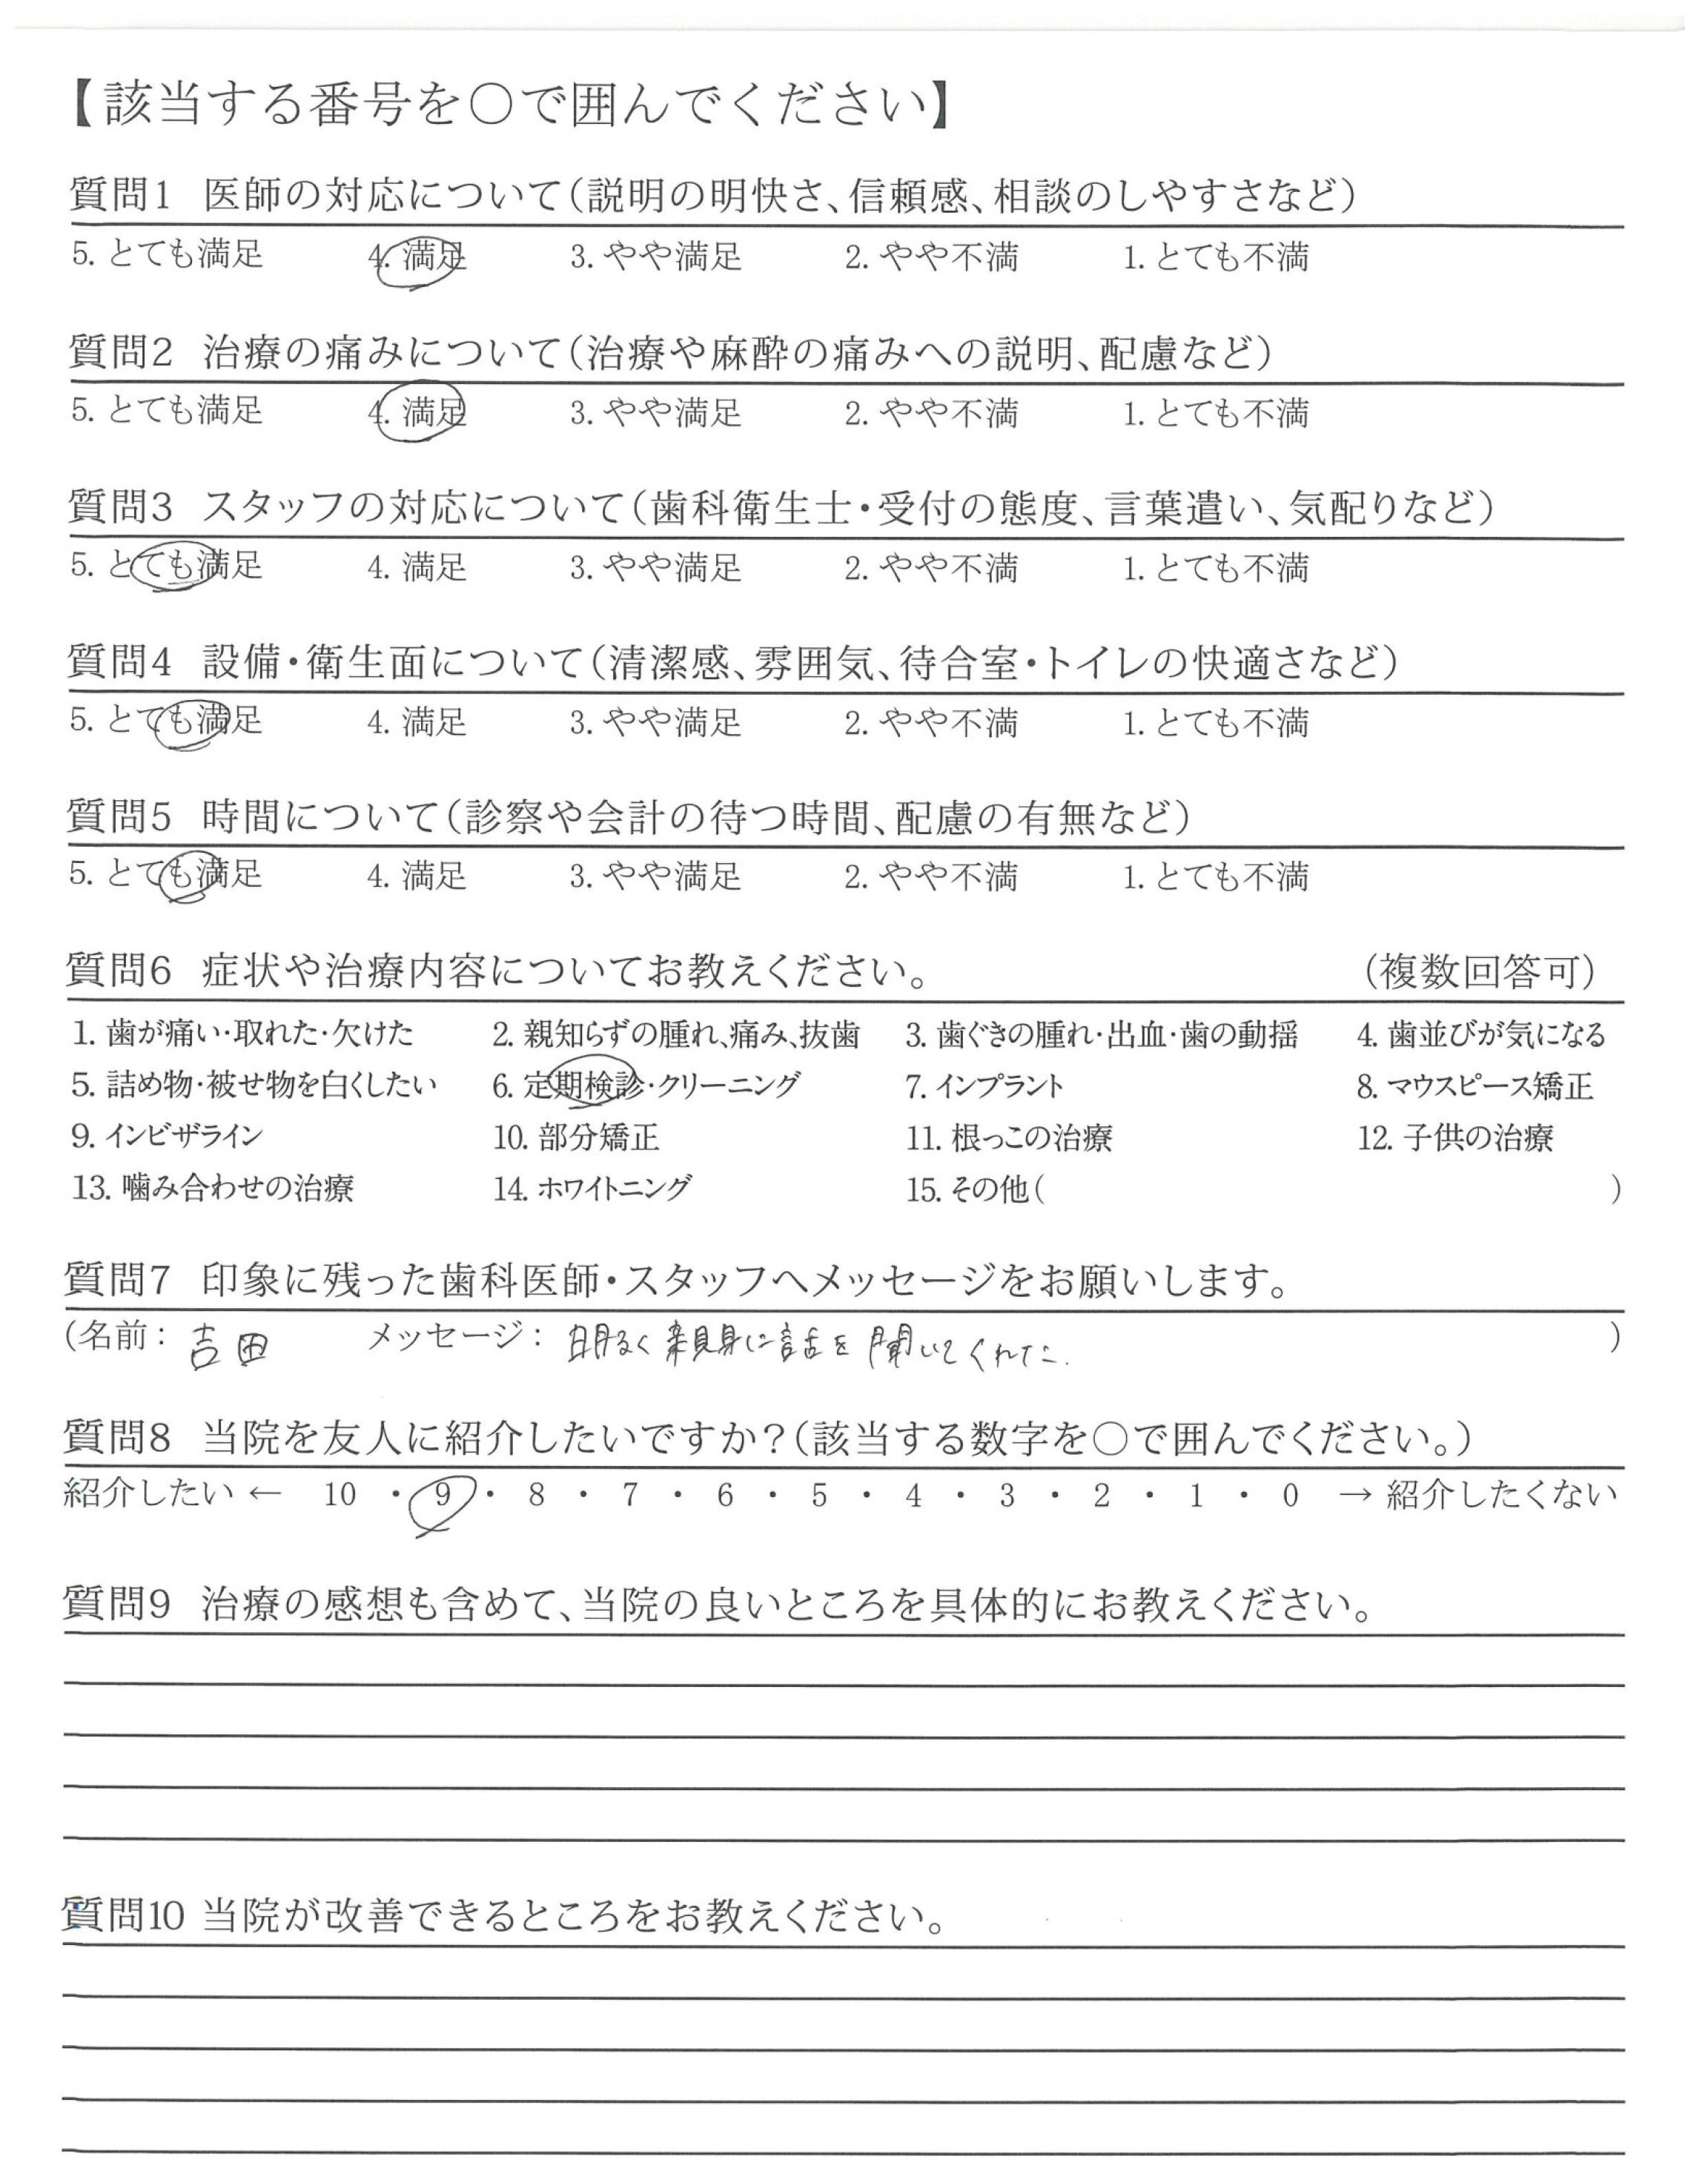 【該当する番号を〇で囲んでください】
質問1 医師の対応について(説明の明快さ、信頼感、相談のしやすさなど)
5. とても満足 4. 満足 3. やや満足 2. やや不満 1. とても不満
質問2 治療の痛みについて(治療や麻酔の痛みへの説明、配慮など)
5. とても満足 4. 満足 3. やや満足 2. やや不満 1. とても不満
質問3 スタッフの対応について(歯科衛生士・受付の態度、言葉遣い、気配りなど)
5. とても満足 4. 満足 3. やや満足 2. やや不満 1. とても不満
質問4 設備・衛生面について(清潔感、雰囲気、待合室・トイレの快適さなど)
5. とても満足 4. 満足 3. やや満足 2. やや不満 1. とても不満
質問5 時間について(診察や会計の待つ時間、配慮の有無など)
5. とても満足 4. 満足 3. やや満足 2. やや不満 1. とても不満
質問6 症状や治療内容についてお教えください。 (複数回答可)
1. 歯が痛い・取れた・欠けた 2. 親知らずの腫れ、痛み、抜歯 3. 歯ぐきの腫れ・出血・歯の動揺 4. 歯並びが気になる
5. 詰め物・被せ物を白くしたい 6. 定期検診・クリーニング 7. インプラント 8. マウスピース矯正
9. インビザライン 10. 部分矯正 11. 根っこの治療 12. 子供の治療
13. 噛み合わせの治療 14. ホワイトニング 15. その他( )
質問7 印象に残った歯科医師・スタッフへメッセージをお願いします。
(名前: 吉田 メッセージ: 明るく親身に話を聞いてくれた. )
質問8 当院を友人に紹介したいですか?(該当する数字を〇で囲んでください。)
紹介したい ← 10 ・ 9 ・ 8 ・ 7 ・ 6 ・ 5 ・ 4 ・ 3 ・ 2 ・ 1 ・ 0 → 紹介したくない
質問9 治療の感想も含めて、当院の良いところを具体的にお教えください。
質問10 当院が改善できるところをお教えください。